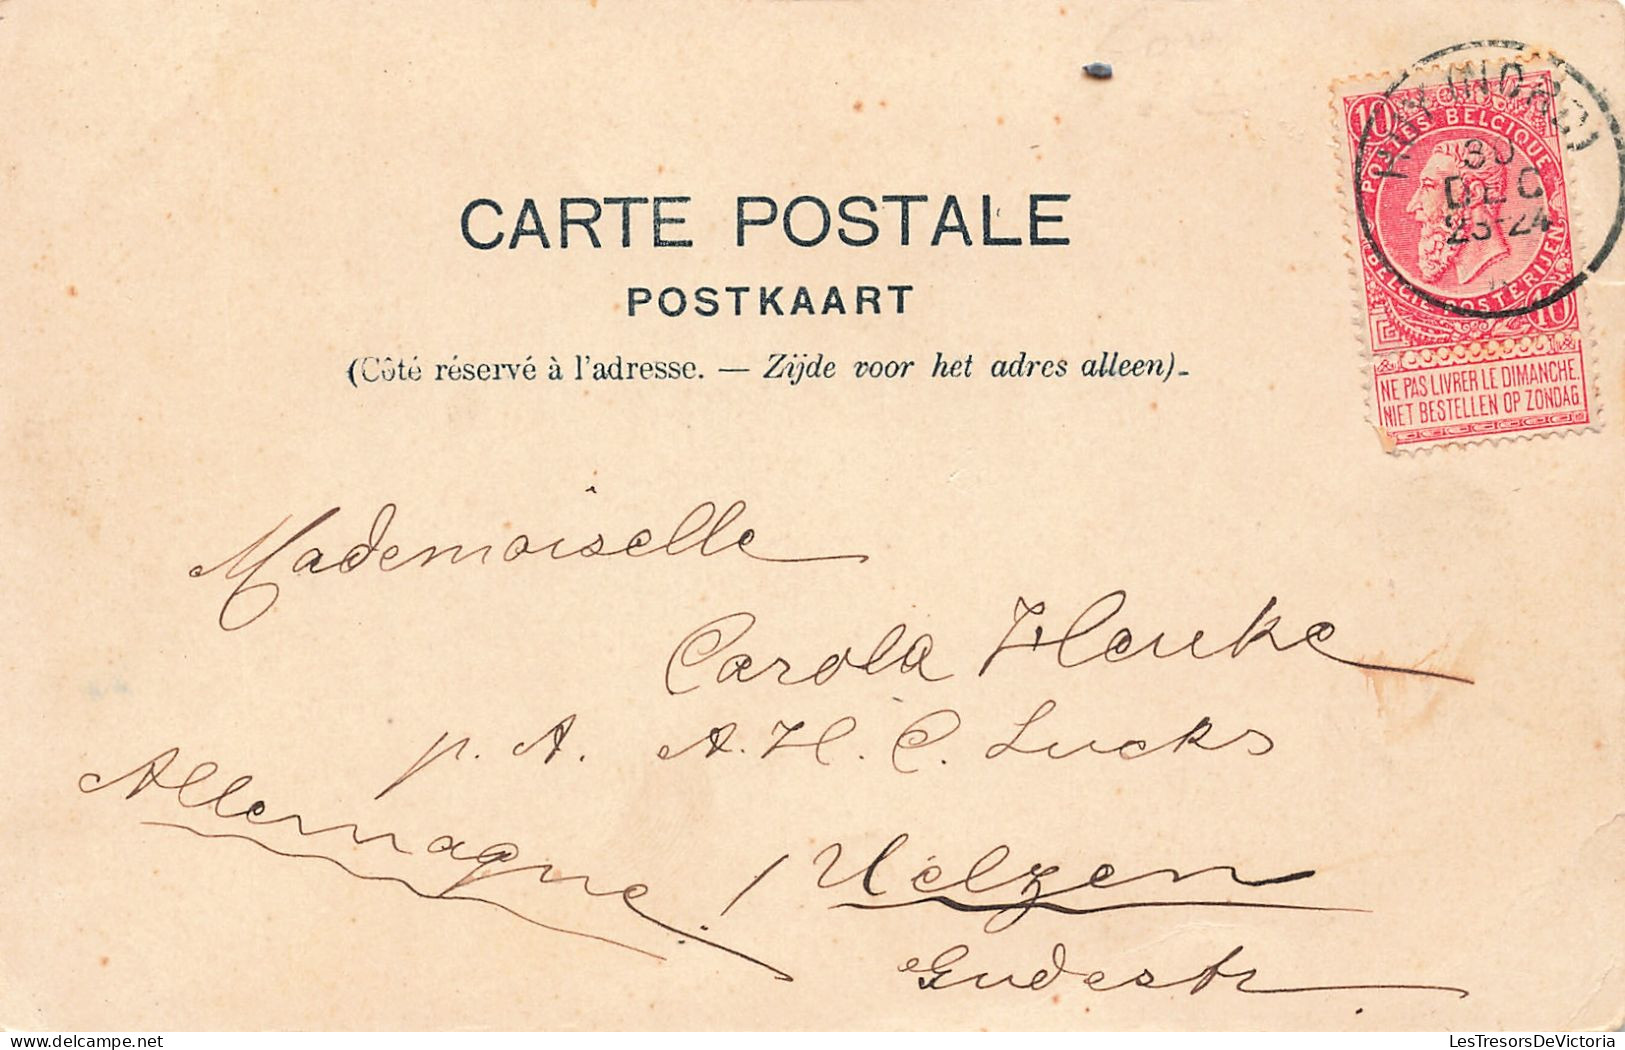 CARTE POSTALE
POSTKAART
(Côté réservé à l'adresse. — Zijde voor het adres alleen).
HUY (NORD)
30
DEC
23-24
10
POSTES BELGIQUE
BELGIE POSTERIJEN
10
NE PAS LIVRER LE DIMANCHE.
NIET BESTELLEN OP ZONDAG.
Mademoiselle
Carola Hauke
p. A. A. H. C. Lucks
Allemagne! / Uelzen
Gudestr
LesTresorsDeVictoria